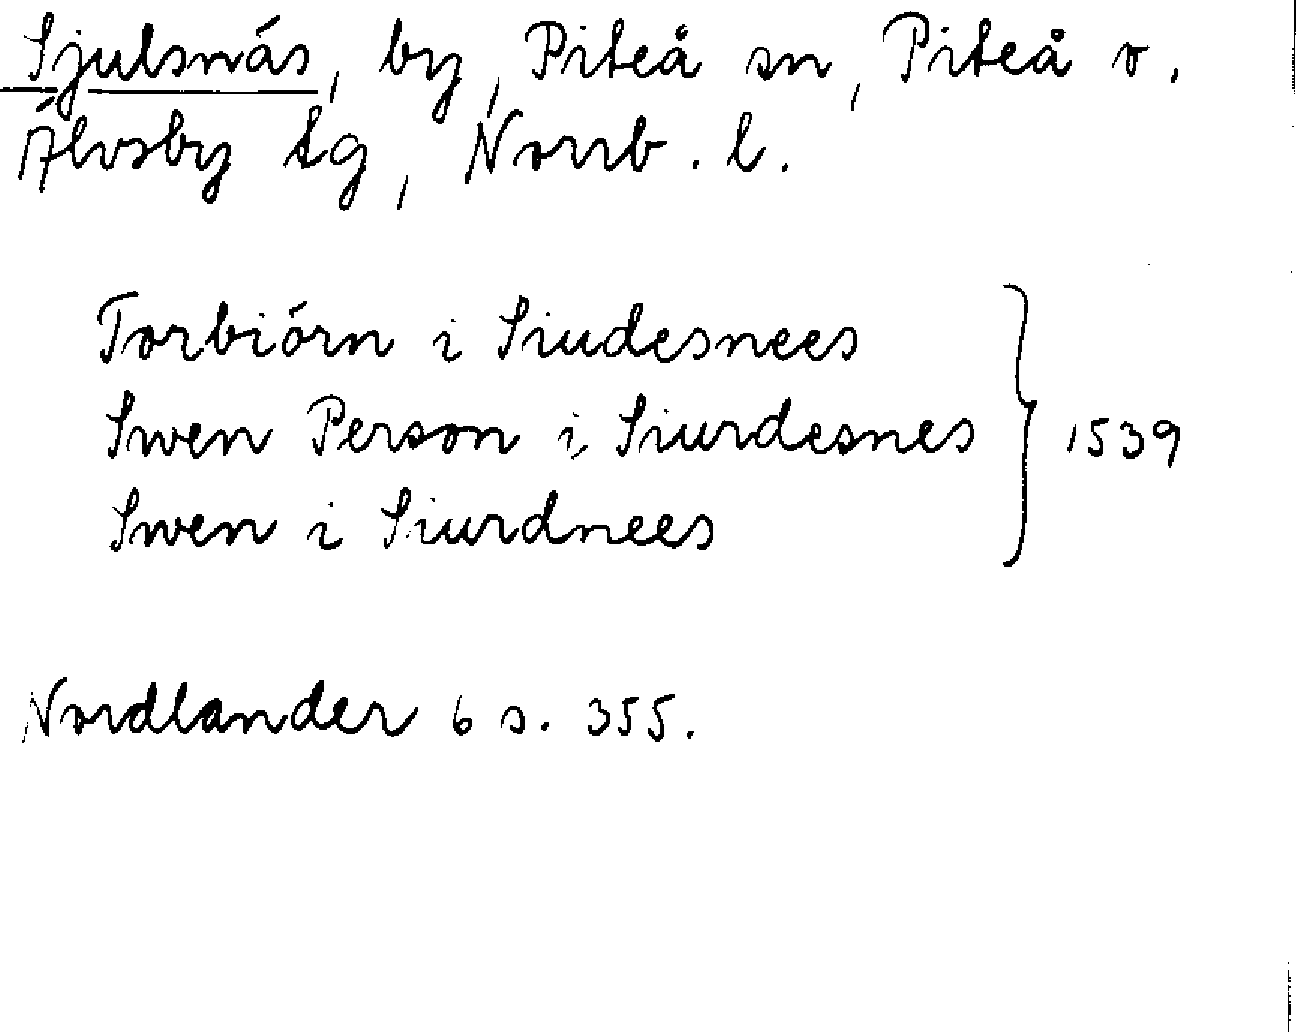 Sjulsnäs, by, Piteå sn, Piteå o.
Älvsby tg, Norrb. l.
Torbiörn i Siudesnees
Swen Person i Siurdesnes } 1539
Swen i Siurdnees
Nordlander 6 s. 355.